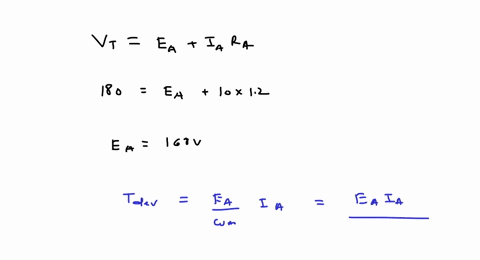 V_T = E_A + I_A R_A
180 = E_A + 10 × 1.2
E_A = 168V
T_dev = E_A/ω_m I_A = E_A I_A